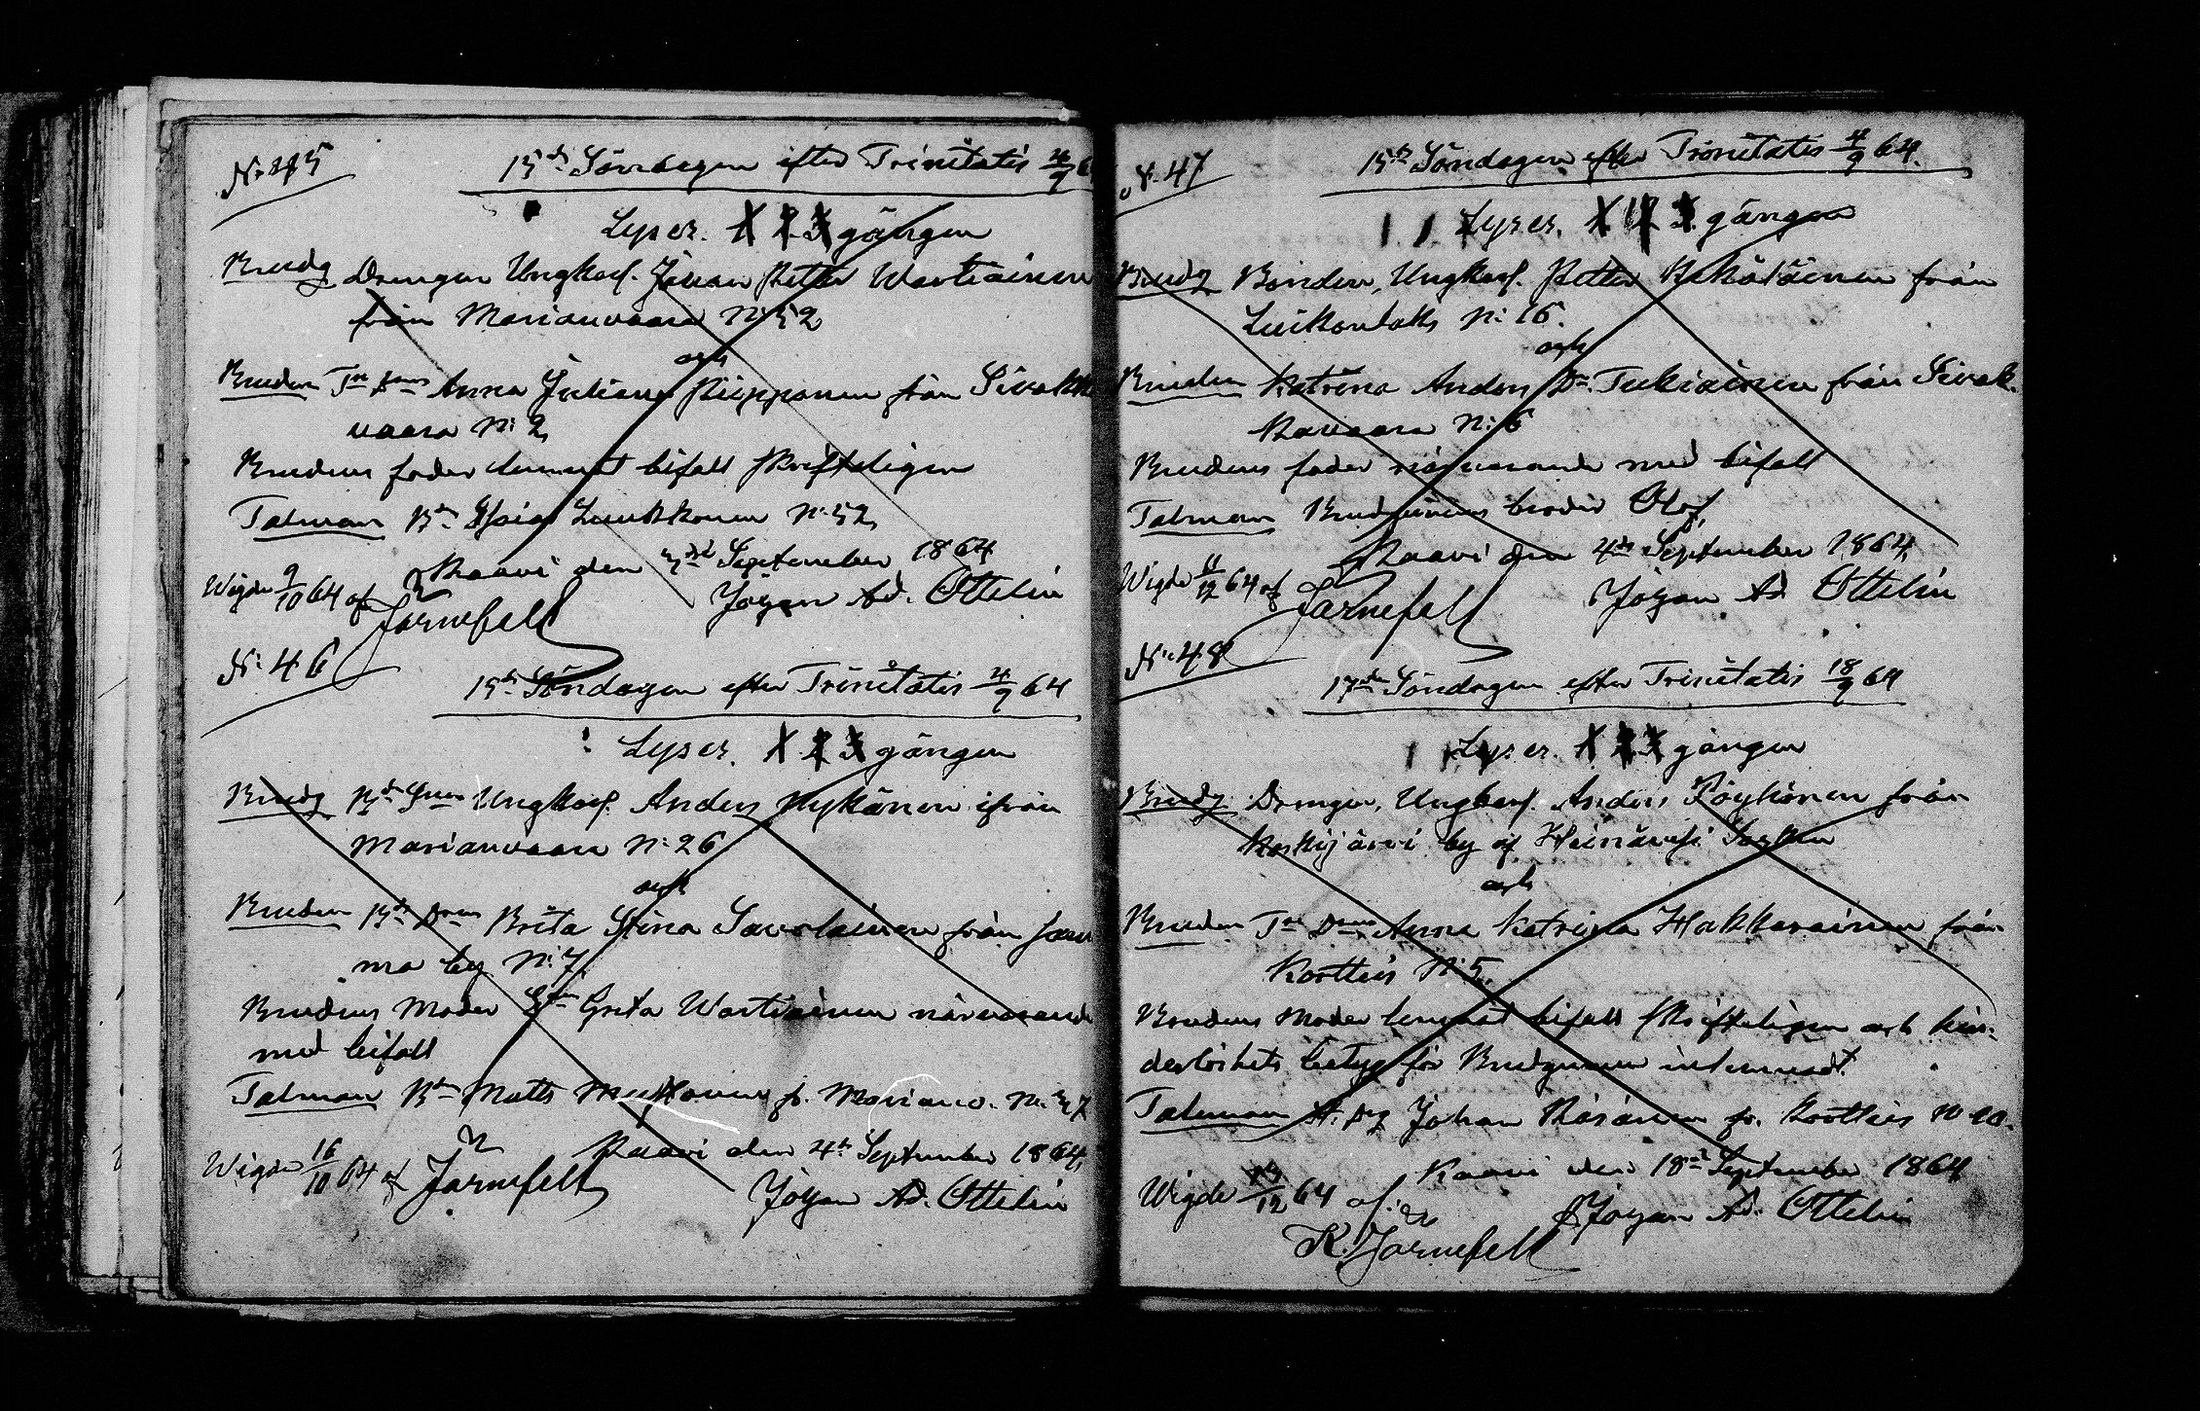 N: 45
15de Söndagen efter Trinitatis 4/9 6
Lyses. 1 2 3 gången
Brudg Drengen Ungkarl. Johan Petter Wartiainen
från Marianvaara N: 52
och
Bruden Tor Dren Anna Juliana Piipponen från Sivakka
vaara N: 2
Brudens fader lemnat bifall skrifteligen
Talman Bn Luukkonen N: 52
Kaavi den September 1864
Wigde 9/10 64 af Järnefelt
Johan Ad. Ottelin
N: 46
15de Söndagen efter Trinitatis 4/9 64
Lyses. 1 2 3 gången
Brudg Bde Sonen Ungkarl. Anders Nykänen ifrån
Marianvaara N: 26
och
Bruden Bde Dren Brita Stina Savolainen från
ma by N: 7.
Brudens Moder Greta Wartiainen närvarande
med bifall
Talman Bn Matts f. Marianv. N:
Kaavi den 4de September 1864,
Wigde 16/10 64 af Järnefelt
Johan Ad. Ottelin
N: 47
15de Söndagen efter Trinitatis 4/9 64.
Lyses. 1 2 3 gången
Brudg Bonden, Ungkarl. Petter från
Luikonlaks N: 16.
och
Bruden Katrina Anders Dr. Tukiainen från Sivak-
kavaara N: 6
Brudens fader närvarande med bifall
Talman Brudgummens broder Olof,
Kaavi den 4de September 1864,
Wigde 11/12 64 af Järnefelt
Johan Ad Ottelin
N: 48
17de Söndagen efter Trinitatis 18/9 64
Lyses. 1 2 3 gången
Brudg Drengen, Ungkarl. Anders Röykönen från
Koskijärvi by af Heinävesi Socken
och
Bruden Tor Dren Anna Katrina Hakkarainen från
Kortteis N: 5.
Brudens Moder lemnat bifall skrifteligen och hin-
derlöshets betyg för Brudgummen inlemnadt.
Talman Johan Räsänen fr. Kortteis N 10.
Kaavi den 18de September 1864
Wigde /12 64 af
Johan Ad. Ottelin
K. Järnefelt